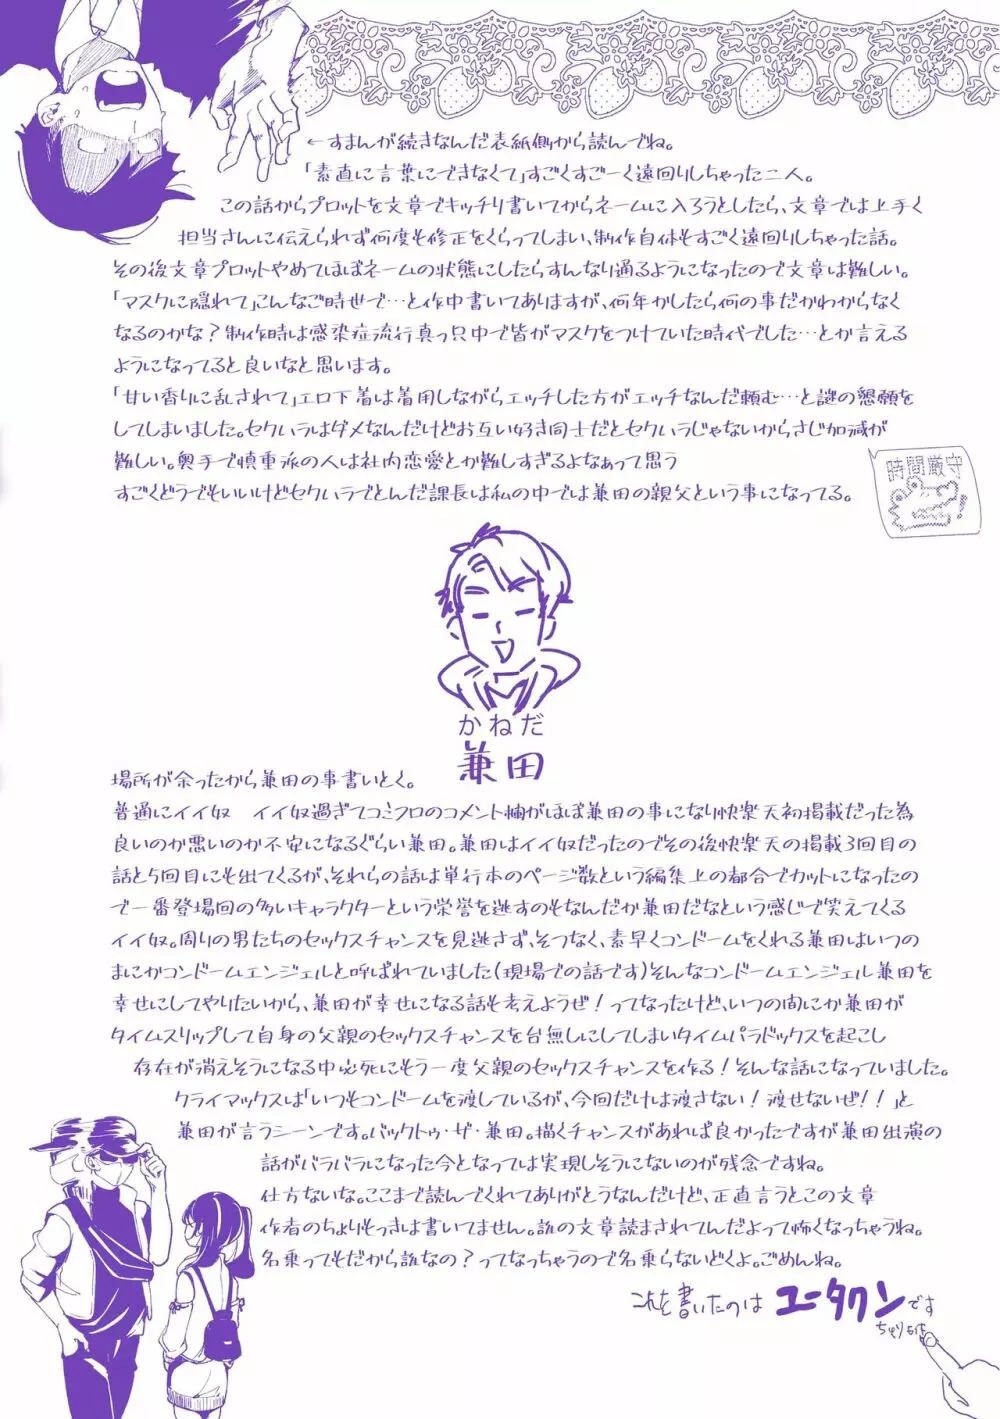 ←すまんが続きなんだ表紙側から読んでね。
「素直に言葉にできなくて」すごくすごーく遠回りしちゃった二人。
この話からプロットを文章でキッチリ書いてからネームに入ろうとしたら、文章では上手く
担当さんに伝えられず何度も修正をくらってしまい、制作自体もすごく遠回りしちゃった話。
その後文章プロットやめてほぼネームの状態にしたらすんなり通るようになったので文章は難しい。
「マスクに隠れて」こんなご時世で…と作中書いてありますが、何年かしたら何の事だかわからなく
なるのかな？制作時は感染症流行真っ只中で皆がマスクをつけていた時代でした…とか言える
ようになってると良いなと思います。
「甘い香りに乱されて」エロ下着は着用しながらエッチした方がエッチなんだ頼む…と謎の懇願を
してしまいました。セクハラはダメなんだけどお互い好き同士だとセクハラじゃないからさじ加減が
難しい。奥手で慎重派の人は社内恋愛とか難しすぎるよなぁって思う
すごくどうでもいいけどセクハラでとんだ課長は私の中では兼田の親父という事になってる。
時間厳守
かねだ
兼田
場所が余ったから兼田の事書いとく。
普通にイイ奴　イイ奴過ぎてコミフロのコメント欄がほぼ兼田の事になり快楽天初掲載だった為
良いのか悪いのか不安になるぐらい兼田。兼田はイイ奴だったのでその後快楽天の掲載3回目の
話と5回目にも出てくるが、それらの話は単行本のページ数という編集上の都合でカットになったの
で一番登場回の多いキャラクターという栄誉を逃すのもなんだか兼田だなという感じで笑えてくる
イイ奴。周りの男たちのセックスチャンスを見逃さず、そつなく、素早くコンドームをくれる兼田はいつの
まにかコンドームエンジェルと呼ばれていました(現場での話です)そんなコンドームエンジェル兼田を
幸せにしてやりたいから、兼田が幸せになる話も考えようぜ！ってなったけど、いつの間にか兼田が
タイムスリップして自身の父親のセックスチャンスを台無しにしてしまいタイムパラドックスを起こし
存在が消えそうになる中必死にもう一度父親のセックスチャンスを作る！そんな話になっていました。
クライマックスは「いつもコンドームを渡しているが、今回だけは渡さない！渡せないぜ！！」と
兼田が言うシーンです。バックトゥ・ザ・兼田。描くチャンスがあれば良かったですが兼田出演の
話がバラバラになった今となっては実現しそうにないのが残念ですね。
仕方ないな。ここまで読んでくれてありがとうなんだけど、正直言うとこの文章
作者のちょりもっきは書いてません。誰の文章読まされてんだよって怖くなっちゃうね。
名乗ってもだから誰なの？ってなっちゃうので名乗らないどくよ。ごめんね。
これを書いたのは ユータクン です